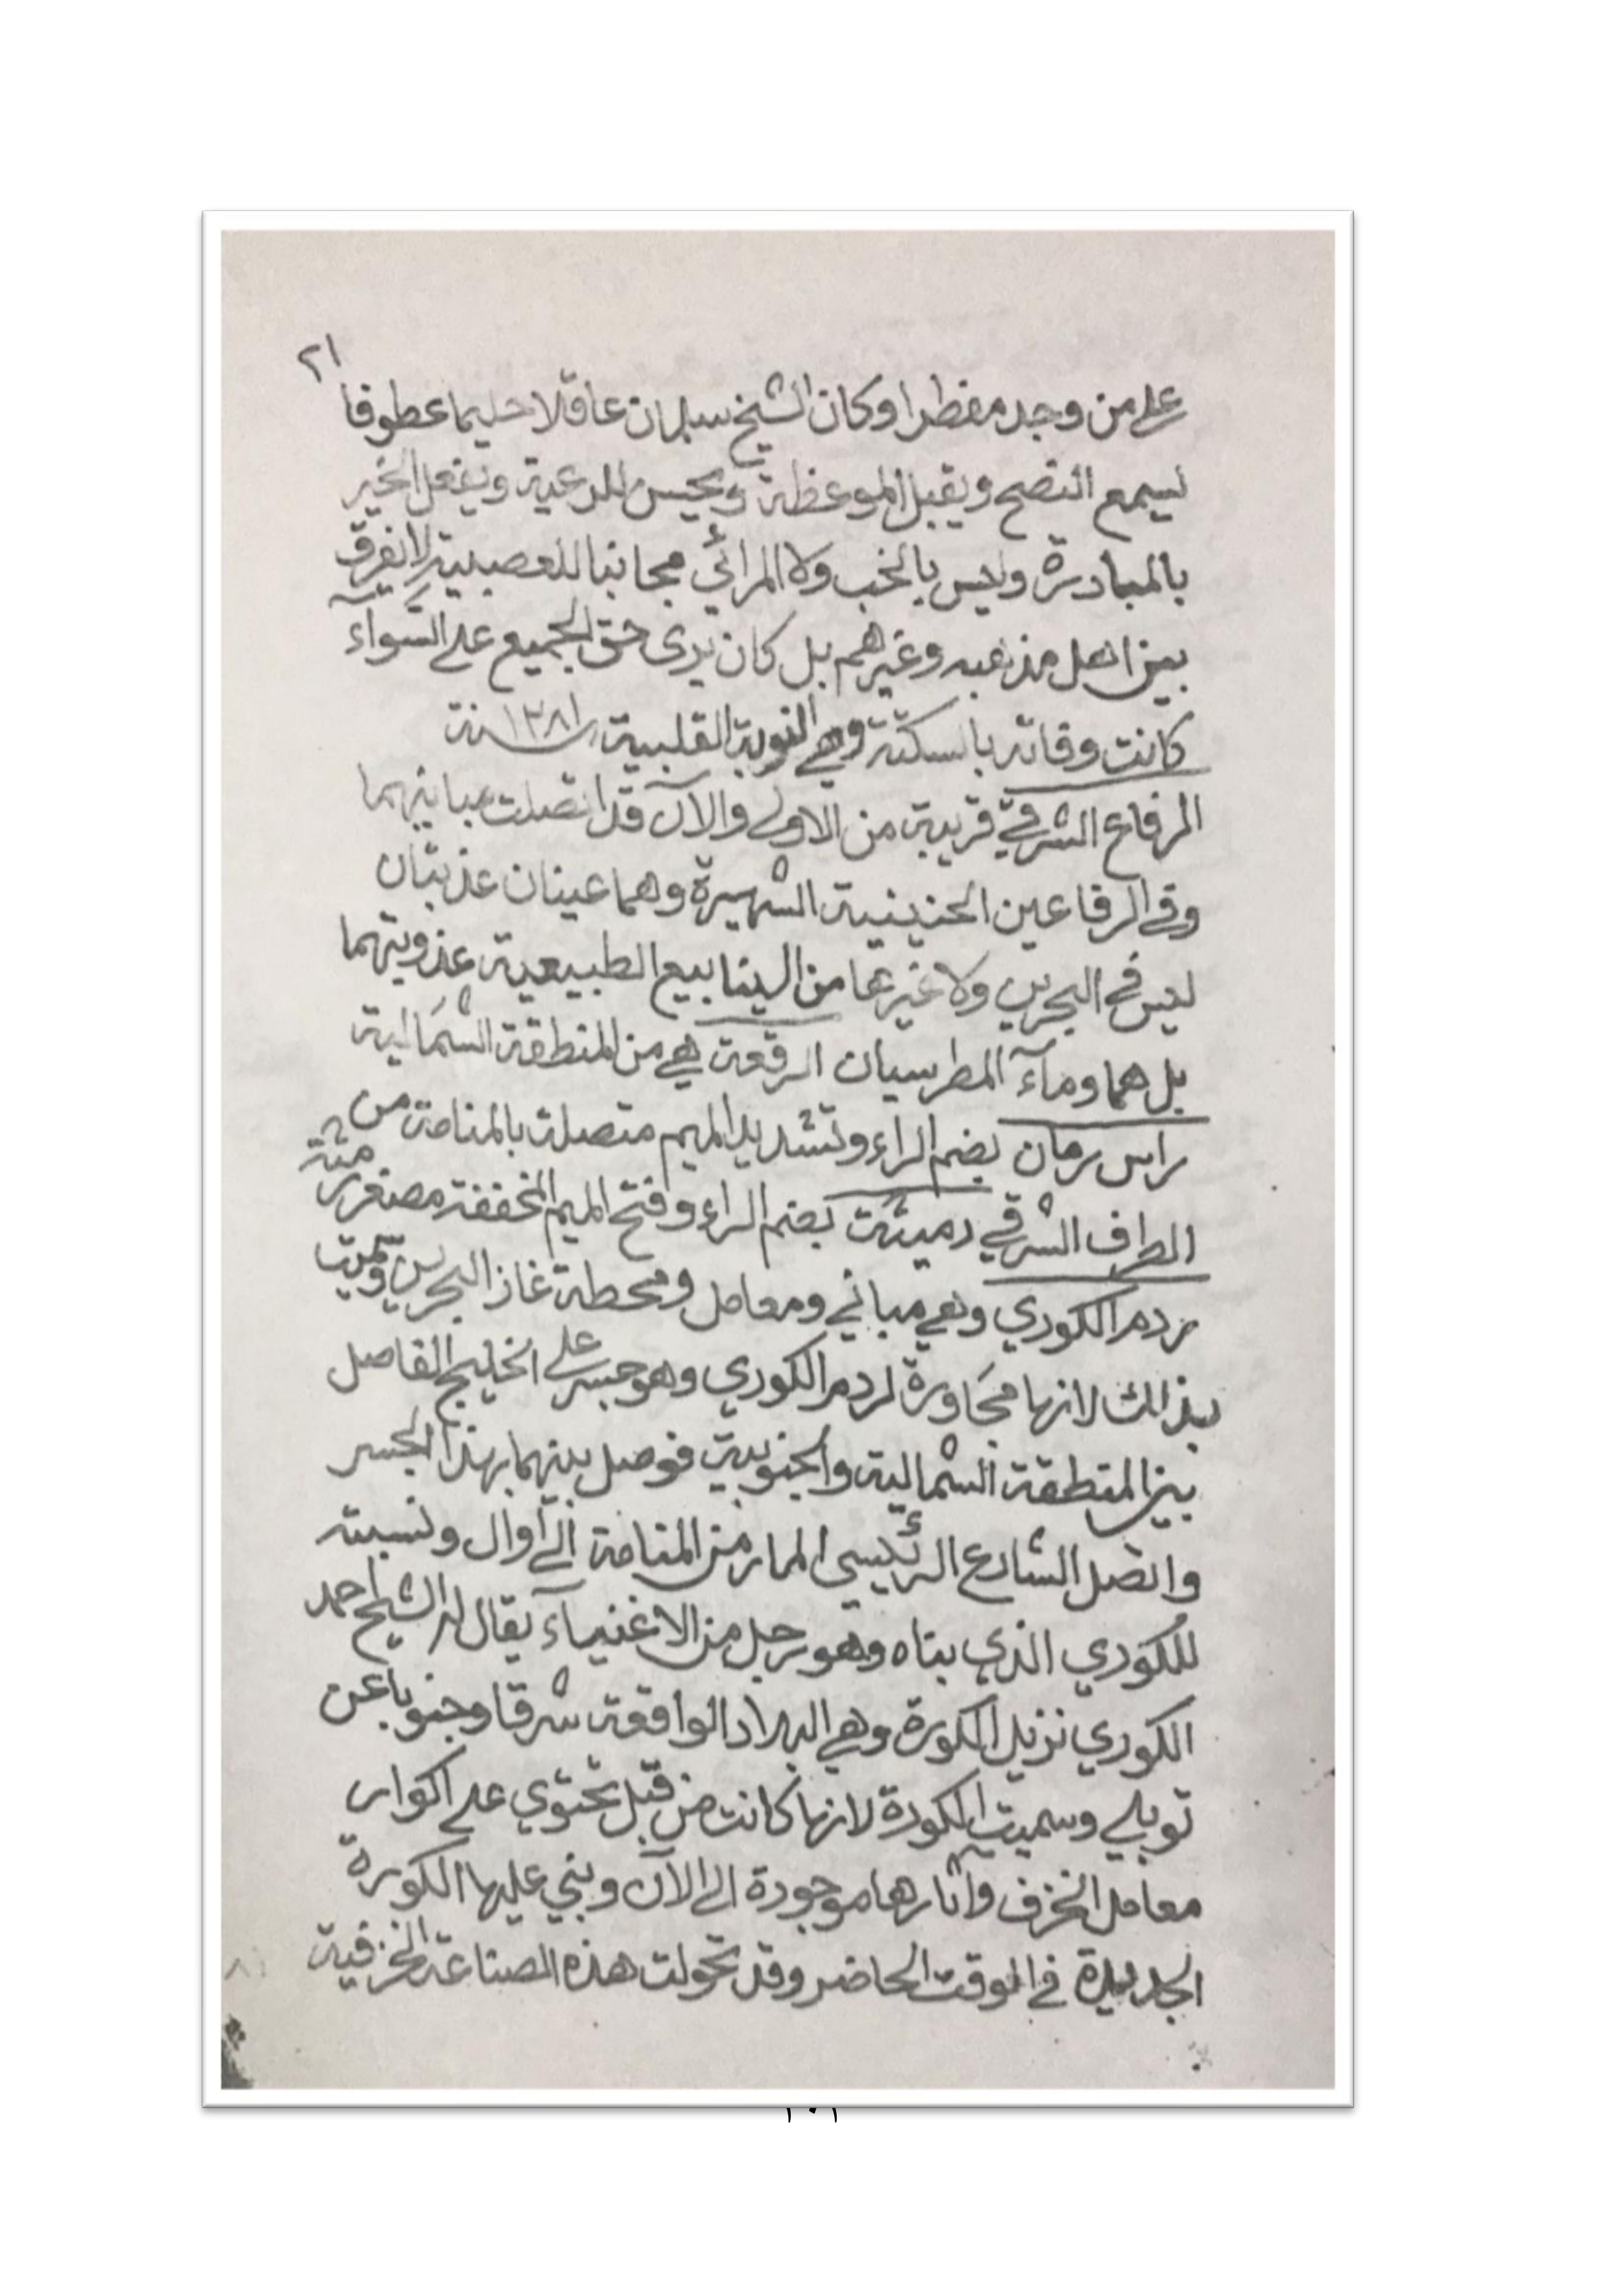 ٢١
على من وجد مفطرا وكان الشيخ سلمان عاقلا حليما عطوفا
يسمع النصح ويقبل الموعظة ويحسن للرعية ويفعل الخير
بالمبادرة وليس بالخب ولا المرائي مجانبا للعصبية لا يفرق
بين اهل مذهبه وغيرهم بل كان يرى حق الجميع على السَّوآء
كانت وفاته بالسكتة وهي النوبة القلبية سنة ١٣٨١
الرفاع الشرقي قريبة من الاولى والآن قد اتصلت مبانيهما
وفي الرفاعين الحنينية الشهيرة وهما عينان عذبتان
ليس في البحرين ولا غيرها من الينابيع الطبيعية عذوبتهما
بل هما ومآء المطر سيان الرقعة هي من المنطقة الشمالية
راس رمان بضم الراء وتشديد الميم متصلة بالمنامة من
الطرف الشرقي رميثة بضم الراء وفتح الميم المخففة مصغر رمثة
ردم الكوري وهي مباني ومعامل ومحطة غاز البحرين وسميت
بذالك لانها مجَاورة لردم الكوري وهو جسر على الخليج الفاصل
بين المنطقة الشمالية والجنوبية فوصل بينهما بهذا الجسر
واتصل الشارع الرئيسي المار من المنامة الى أوال ونسبته
للكوري الذي بناه وهو رجل من الاغنيآء يقال له الشيخ احمد
الكوري نزيل الكورة وهي البلاد الواقعة شرقا وجنوبا عن
توبلي وسميت الكورة لانها كانت من قبل تحتوي على اكوار
معامل الخزف وآثارها موجودة الى الآن وبني عليها الكورة
الجديدة في الوقت الحاضر وقد تحولت هذه الصناعة الخزفية